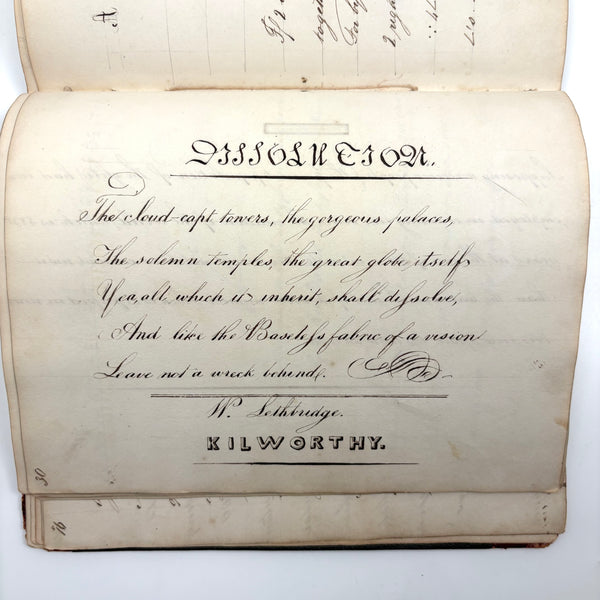 DISSOLUTION.
The cloud-capt towers, the gorgeous palaces,
The solemn temples, the great globe itself
Yea, all which it inherit, shall dissolve,
And like the Baseless fabric of a vision
Leave not a wreck behind.
W. Lethbridge.
KILWORTHY.
30
76
A
If 2
together